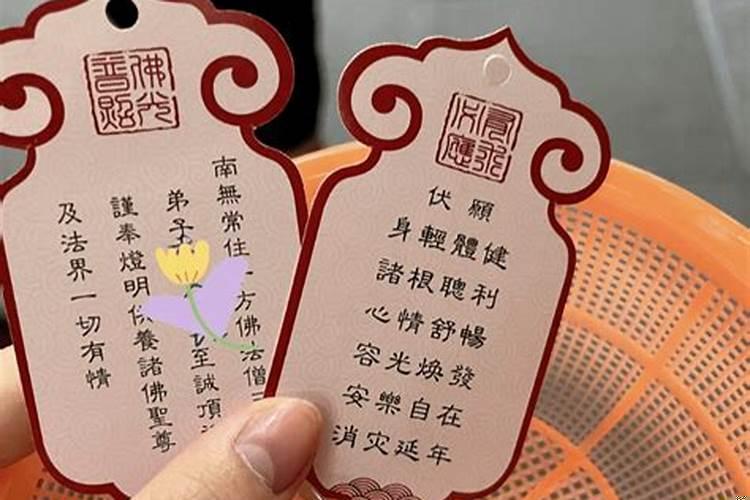 佛光
普照
南無常住方佛法僧
弟子至誠頂
謹奉燈明供養諸佛聖尊
及法界一切有情
有求
必應
伏願
身輕體健
諸根聰利
心情舒暢
容光煥發
安樂自在
消灾延年